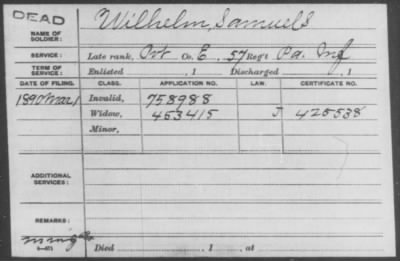 DEAD
Wilhelm, Samuel S
NAME OF SOLDIER:
SERVICE: Late rank, Pvt Co. E, 57 Reg't Pa. Inf
TERM OF SERVICE: Enlisted , 1 Discharged , 1
DATE OF FILING. CLASS. APPLICATION NO. LAW. CERTIFICATE NO.
1890 Mar 1 Invalid, 758988
Widow, 453415 J 425538
Minor,
ADDITIONAL SERVICES:
REMARKS:
Died , 1 , at